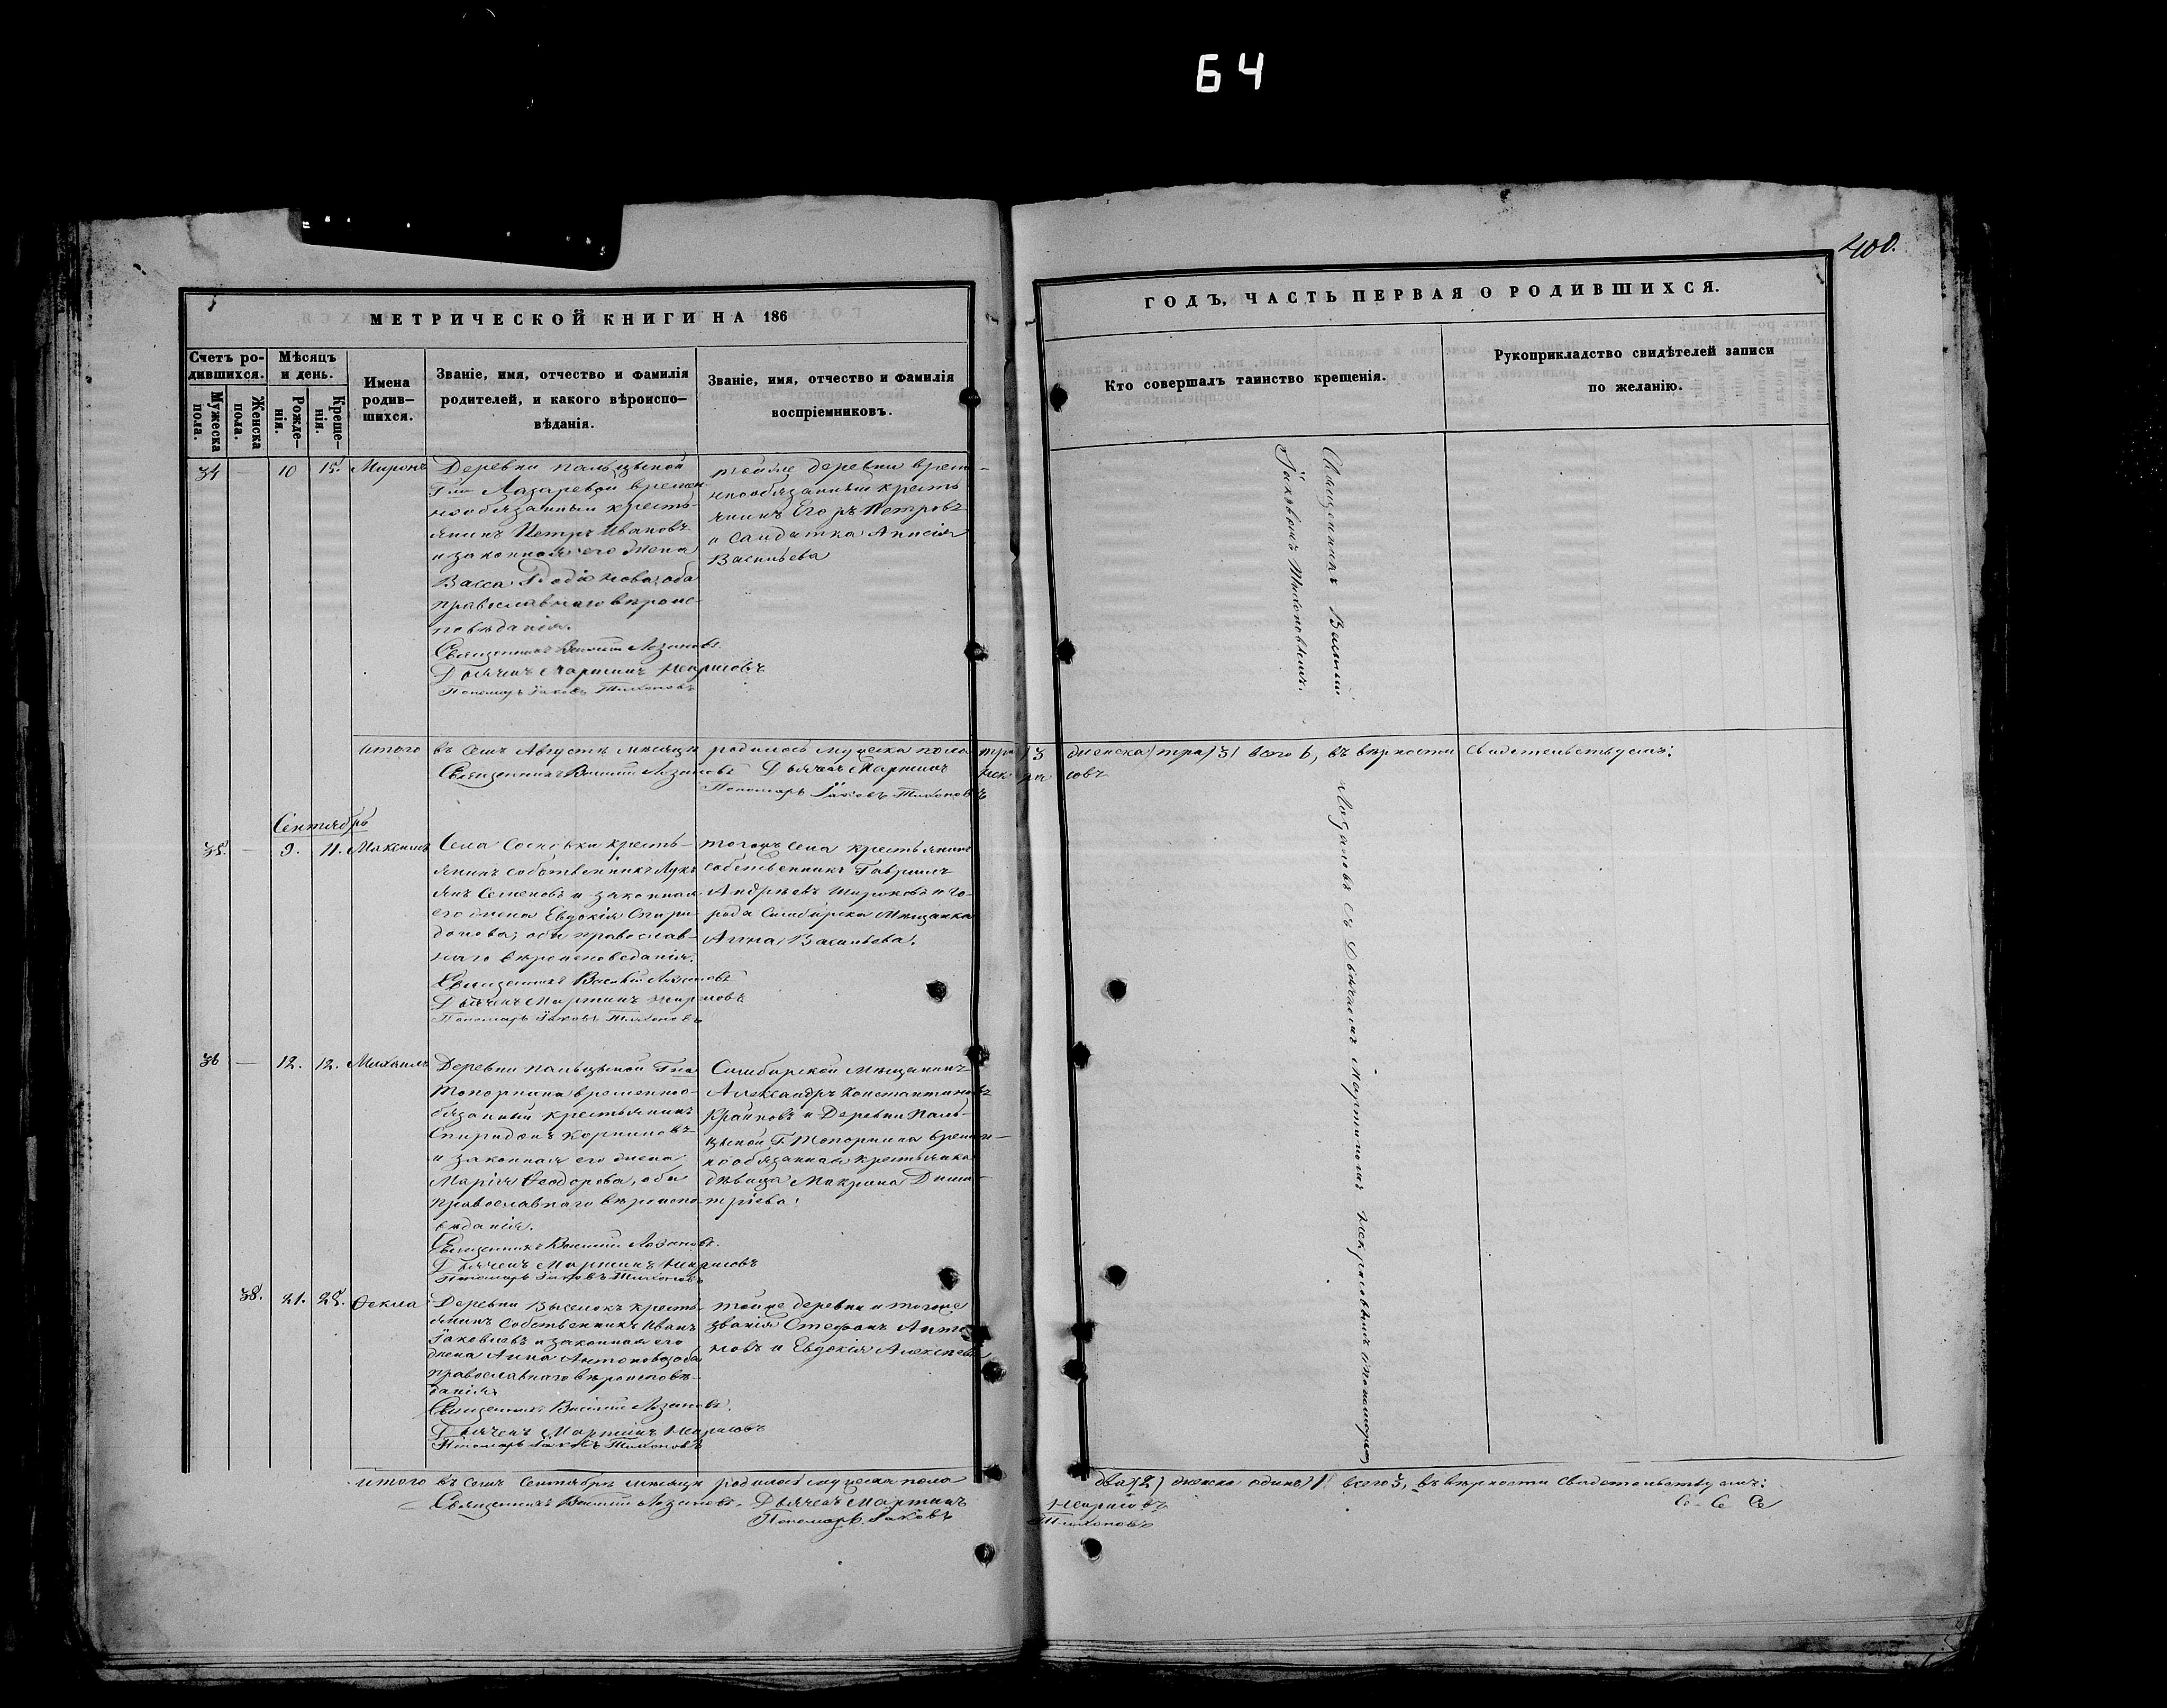 64
400.
МЕТРИЧЕСКОЙ КНИГИ НА 186
Счетъ ро-
дившихся.
Мужеска
пола.
Женска
пола.
Мѣсяцъ
и день.
Рожде-
нія.
Креще-
нія.
Имена
родив-
шихся.
Званіе, имя, отчество и фамилія
родителей, и какого вѣроиспо-
вѣданія.
Званіе, имя, отчество и фамилія
воспріемниковъ.
ГОДЪ, ЧАСТЬ ПЕРВАЯ О РОДИВШИХСЯ.
Кто совершалъ таинство крещенія.
Рукоприкладство свидѣтелей записи
по желанію.
34 — 10 15. Миронъ
Деревни Пальцыной
Гна Лазаревой времен-
нообязанный кресть-
янинъ Петръ Ивановъ
и законная его жена
Васса Родіонова; оба
православнаго вѣроис-
повѣданія.
Священникъ Василій Лозановъ
Дьячекъ Мартинъ Некрасовъ
Пономарь Іаковъ Тихоновъ
тойже деревни времен-
нообязанный кресть-
янинъ Егоръ Петровъ
и Солдатка Анисія
Васильева
Священникъ Василій
Іаковомъ Тихоновымъ.
итого въ семъ Августѣ мѣсяцѣ родилось мужеска пола три /3 женска /три/ 3/ всего 6, въ вѣрности свидѣтельствуемъ:
Священникъ Василій Лозановъ Дьячекъ Мартинъ Некрасовъ
Пономарь Іаковъ Тихоновъ
Сентябрь
35. — 9. 11. Максимъ
Села Сосновки кресть-
янинъ собственникъ Лукъ-
янъ Семеновъ и законная
его жена Евдокія Спири-
донова; оба православ-
наго вѣроисповеданія.
Священникъ Василій Лозановъ
Дьячекъ Мартинъ Некрасовъ
Пономарь Іаковъ Тихоновъ
тогожъ села крестьянинъ
собственникъ Гавріилъ
Андреевъ и го-
рода Симбирска Мѣщанка
Анна Васильева.
Лозановъ съ Дьячкомъ Мартиномъ Некрасовымъ и пономаремъ
36 — 12. 12. Михаилъ
Деревни Пальцыной Гна
Топорнина временноо-
бязанный крестьянинъ
Спиридонъ Корниловъ
и законная его жена
Марія Ѳеодорова, оба
православнаго вѣроиспо-
вѣданія.
Священникъ Василій Лозановъ.
Дьячекъ Мартинъ Некрасовъ
Пономарь Іаковъ Тихоновъ
Симбирской Мѣщанинъ
Александръ Константиновъ
и Деревни Паль-
цыной Г. Топорнина времен-
нообязанная крестьянка
дѣвица Макрина Дими-
тріева.
38. 21. 25. Ѳекла
Деревни Выселокъ кресть-
янинъ Собственникъ Иванъ
Іаковлевъ и законная его
жена Анна Антонова; оба
православнаго вѣроисповѣ-
данія
Священникъ Василій Лозановъ.
Дьячекъ Мартинъ Некрасовъ
Пономарь Іаковъ Тихоновъ
тойже деревни и тогоже
званія Стефанъ Анто-
новъ и Евдокія Алексѣева
итого въ семъ Сентябрѣ мѣсяцѣ родилось мужеска пола два /2/ женска одина /1/ всего 3, въ вѣрности свидѣтельствуемъ:
Священникъ Василій Лозановъ. Дьячекъ Мартинъ Некрасовъ
Пономарь Іаковъ Тихоновъ